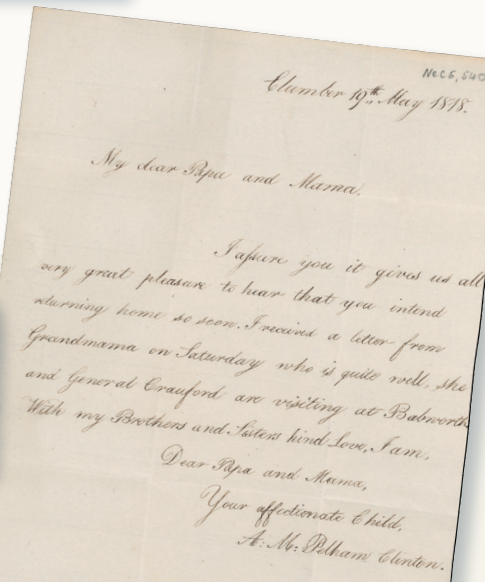 NeC 5,540
Clumber 19th May 1818.
My dear Papa and Mama,
I assure you it gives us all
very great pleasure to hear that you intend
returning home so soon. I received a letter from
Grandmama on Saturday who is quite well, she
and General Craufurd are visiting at Babworth
With my Brothers and Sisters kind Love, I am,
Dear Papa and Mama,
Your affectionate Child,
A: M: Pelham Clinton.